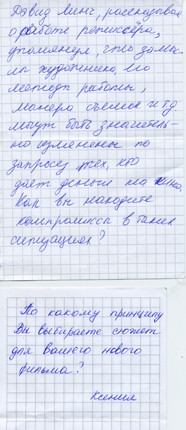 Дэвид Линч, рассказывая
о работе режиссёра,
упомянул, что замыс-
лы художника, его
методы работы,
манера съемок и тд
могут быть значитель-
но изменены по
запросу тех, кто
даёт деньги на кино.
Как вы находите
компромисс в таких
ситуациях?
По какому принципу
Вы выбираете сюжет
для вашего нового
фильма?
Ксения